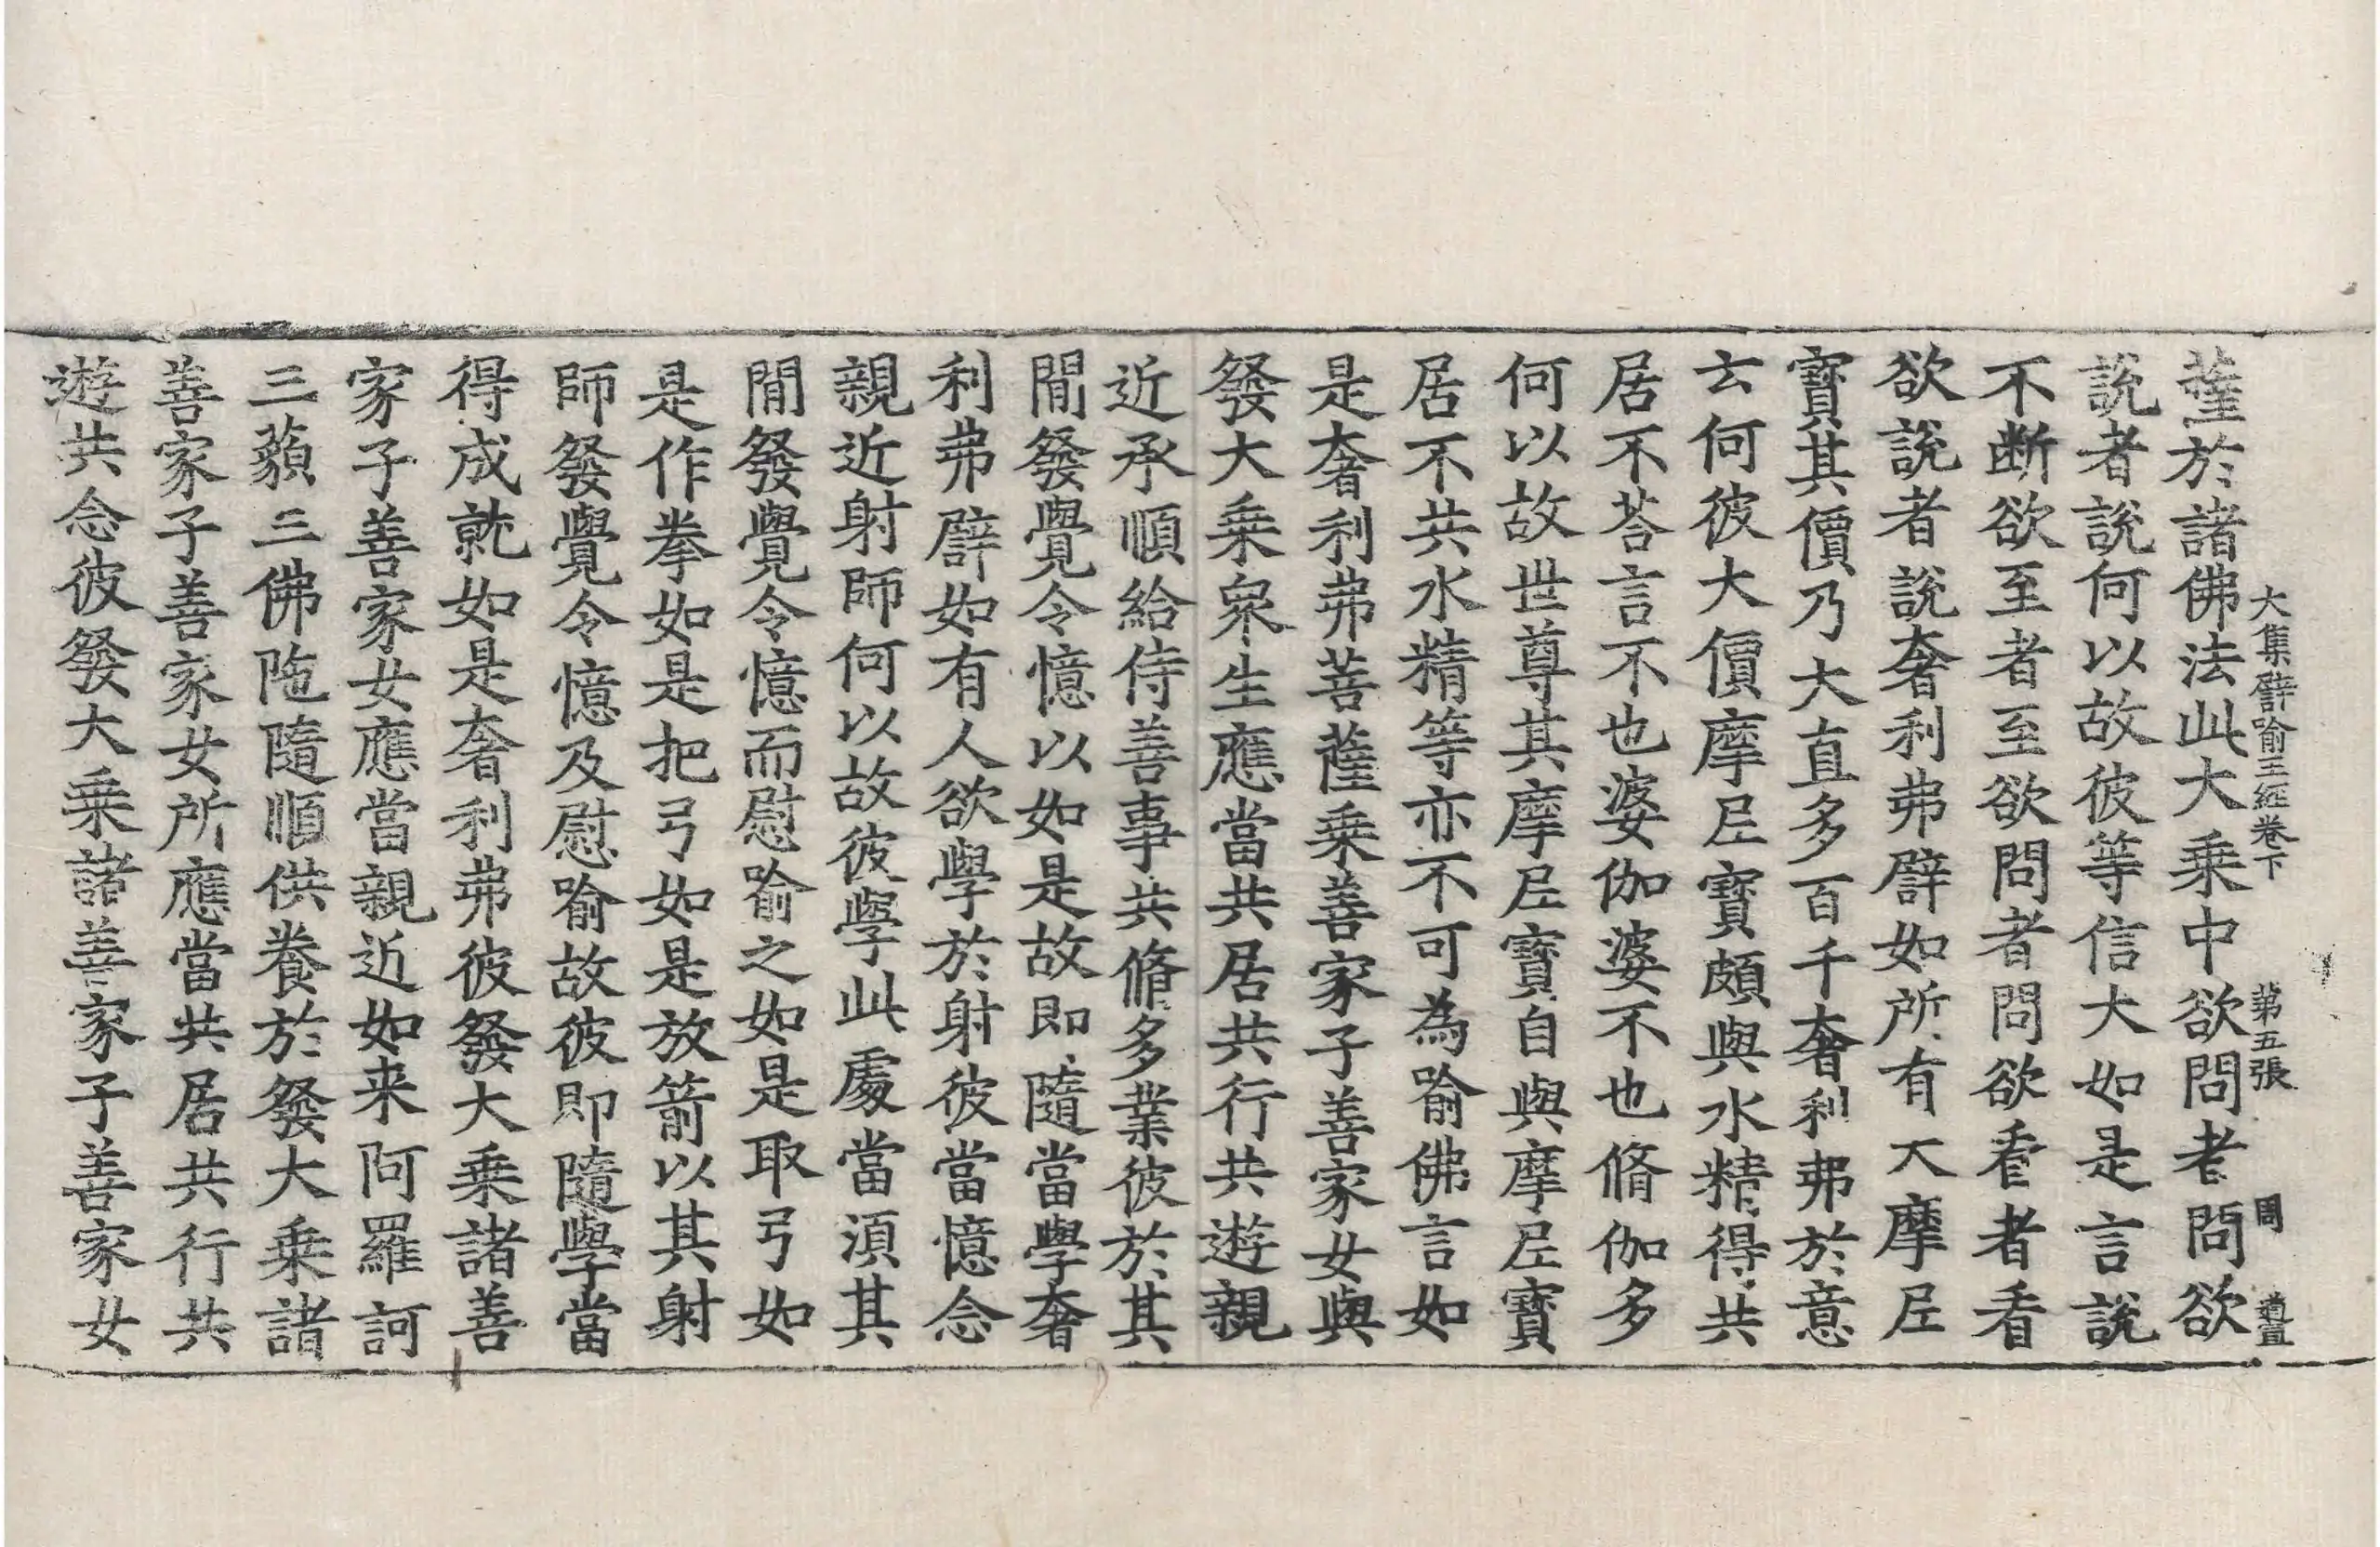 大集譬喻王經卷下　第五張　周　道員
薩於諸佛法此大乘中欲問者問欲
說者說何以故彼等信大如是言說
不断欲至者至欲問者問欲看者看
欲說者說奢利弗譬如所有大摩尼
寶其價乃大直多百千奢利弗於意
云何彼大價摩尼寶頗與水精得共
居不荅言不也婆伽婆不也脩伽多
何以故世尊其摩尼寶自與摩尼寶
居不共水精等亦不可為喻佛言如
是奢利弗菩薩乘善家子善家女與
發大乘衆生應當共居共行共遊親
近承順給侍善事共脩多業彼於其
閒發覺令憶以如是故即隨當學奢
利弗譬如有人欲學於射彼當憶念
親近射師何以故彼學此處當湏其
閒發覺令憶而慰喻之如是取弓如
是作拳如是把弓如是放箭以其射
師發覺令憶及慰喻故彼即隨學當
得成就如是奢利弗彼發大乘諸善
家子善家女應當親近如来阿羅訶
三藐三佛陁隨順供養於發大乘諸
善家子善家女所應當共居共行共
遊共念彼發大乘諸善家子善家女